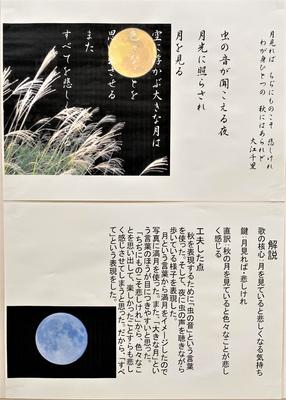 月見れば ちぢにものこそ 悲しけれ
わが身ひとつの 秋にはあらねど
大江千里
虫の音が聞こえる夜
月光に照らされ
月を見る
空に浮かぶ大きな月は
色々なことを
思い出させる
また
すべてを悲しく
解説
歌の核心:月を見ていると悲しくなる気持ち
鍵:月見れば・悲しけれ
直訳:秋の月を見ていると色々なことが悲し
く感じる
工夫した点
秋を表現するために、「虫の音」という言葉
を使った。そして、夜に虫の声を聴きながら
歩いている様子を表現した。
「月」という言葉から満月をイメージしたので
写真に満月を使った。また、「大きな月」とい
う言葉のほうが目につきやすいと思った。
「ちぢにものこそ悲しけれ」から、色々なこ
とを思い出して、楽しかったことすらも悲し
く感じさせてしまうと思った。だから、「すべ
て」という表現をした。